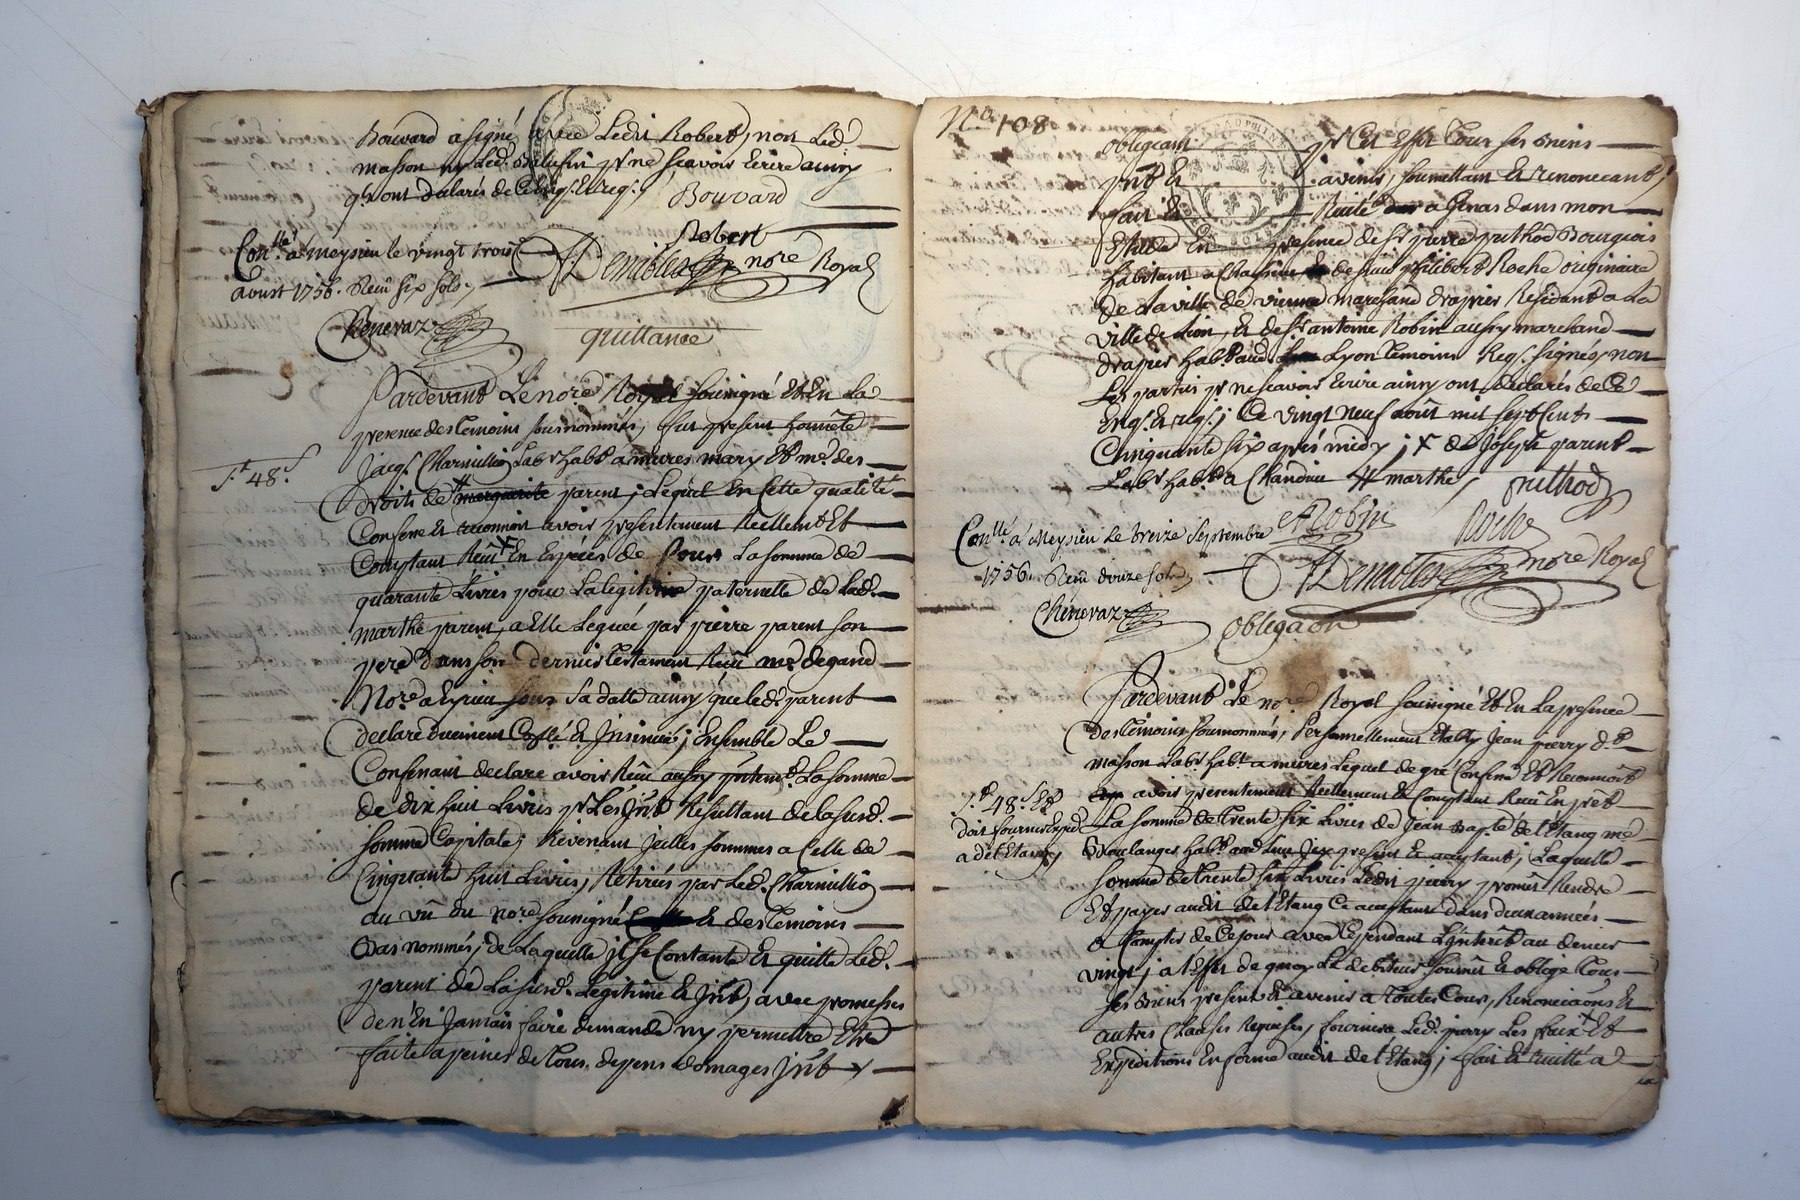 Bouvard a signé avec Ledit Robert, non Led.
masson ny Led. pr ne scavoir Ecrire ainsy
qu'ont declarés de Ce Enqs. et reqs.
Bouvard
Robert
Conllé a meysieu le vingt trois
aoust 1756. Receu six sols
Chenevaz
Demiables nore Royal
quittance
Pardevant Le nore Royal soussigné Et En La
presence des temoins sousnommés, fut present honnete
Jaqs. Charmillio Labr habt a mures mary Et me. des
st 48.s
droits de # marguerite parent; Lequel En Cette qualité
Confesse et reconnoit avoir presentement Reellement Et
Comptant Receu En Especes de Cours La somme de
quarante Livres pour La legitime paternelle de Lad.
marthe parent, a Elle Leguée par pierre parent son
pere dans son dernier testament Receu me. degand
Nore a sous sa datte ainsy que led. parent
declare duement Collé et Insinué; Ensemble Le
Confessant declare avoir Receu aussy La somme
de dix huit Livres pr Les Jnts Resultant de lasusd.
somme Capitale; Revenant jcelles sommes a Celle de
Cinquante huit Livres, Retirées par Led. Charmillio
au vû du nore soussigné et des temoins
Bas nommés; de Laquelle jl se Contante et quitte Led.
parent de Lasusd. Legitime et Jnts, avec promesses
de n'En Jamais faire demande ny permettre Etre
faite a peines de tous depens domages Jnts
No. 108
obligeant pr Cet Effet tous ses biens
pnts et avenir, soumettant et renoncant;
fait et Recité a Genas dans mon
Etude En presence de sr pierre puthod Bourgeois
habitant a Chassieu et de sieur philibert Roche originaire
de La ville de vienne marchand drapier Residant a La
ville de Lion, et de sr antoine Robin aussy marchand
drapier habt aud. Lyon temoins Reqs. signés, non
Les parties pr ne scavoir Ecrire ainsy ont declarés de Ce
Enqs. et reqs.; Ce vingt neuf août mil sept Cents
Cinquante six aprés midy; + de Joseph parent
Labr habt a Chandieu # marthe, puthod
ARobin
Roche
Conllé a Meysieu Le treize Septembre
1756. Receu douze sols
Chenevaz
Demiables nore Royal
obligaon
Pardevant Le nore Royal soussigné Et En La presence
des temoins sousnommés, Personnellement Etably Jean pierry dt
masson Labr habt a mures Lequel de gré Confesse Et Reconnoit
avoir presentement Reellement et Comptant Receu En prêt
st 48.s Et
doit fournir Exped.
a de l'Etang
La somme de trente six Livres de Jean Bapte de l'Etang me
Boulanger habt aud. Lieu Jcy present et acceptant; Laquelle
somme de trente six Livres Ledit pierry promet Rendre
Et payer audit de l'Etang Ce acceptant dans deux années
a Compter de Ce jour avec Cependant L'jnterêt au denier
vingt; a l'Effet de quoy Le debiteur soumet et oblige tous
ses Biens present et avenir a toutes Cours, Renonciaons et
autres Clauses Requises, fournira Led. pierry Les faix Et
Expeditions En forme audit de l'Etang; fait et Recitté a